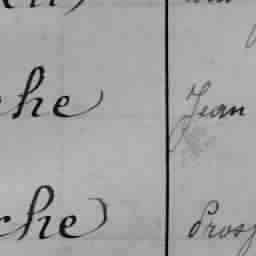 che Jean
che) Prosp